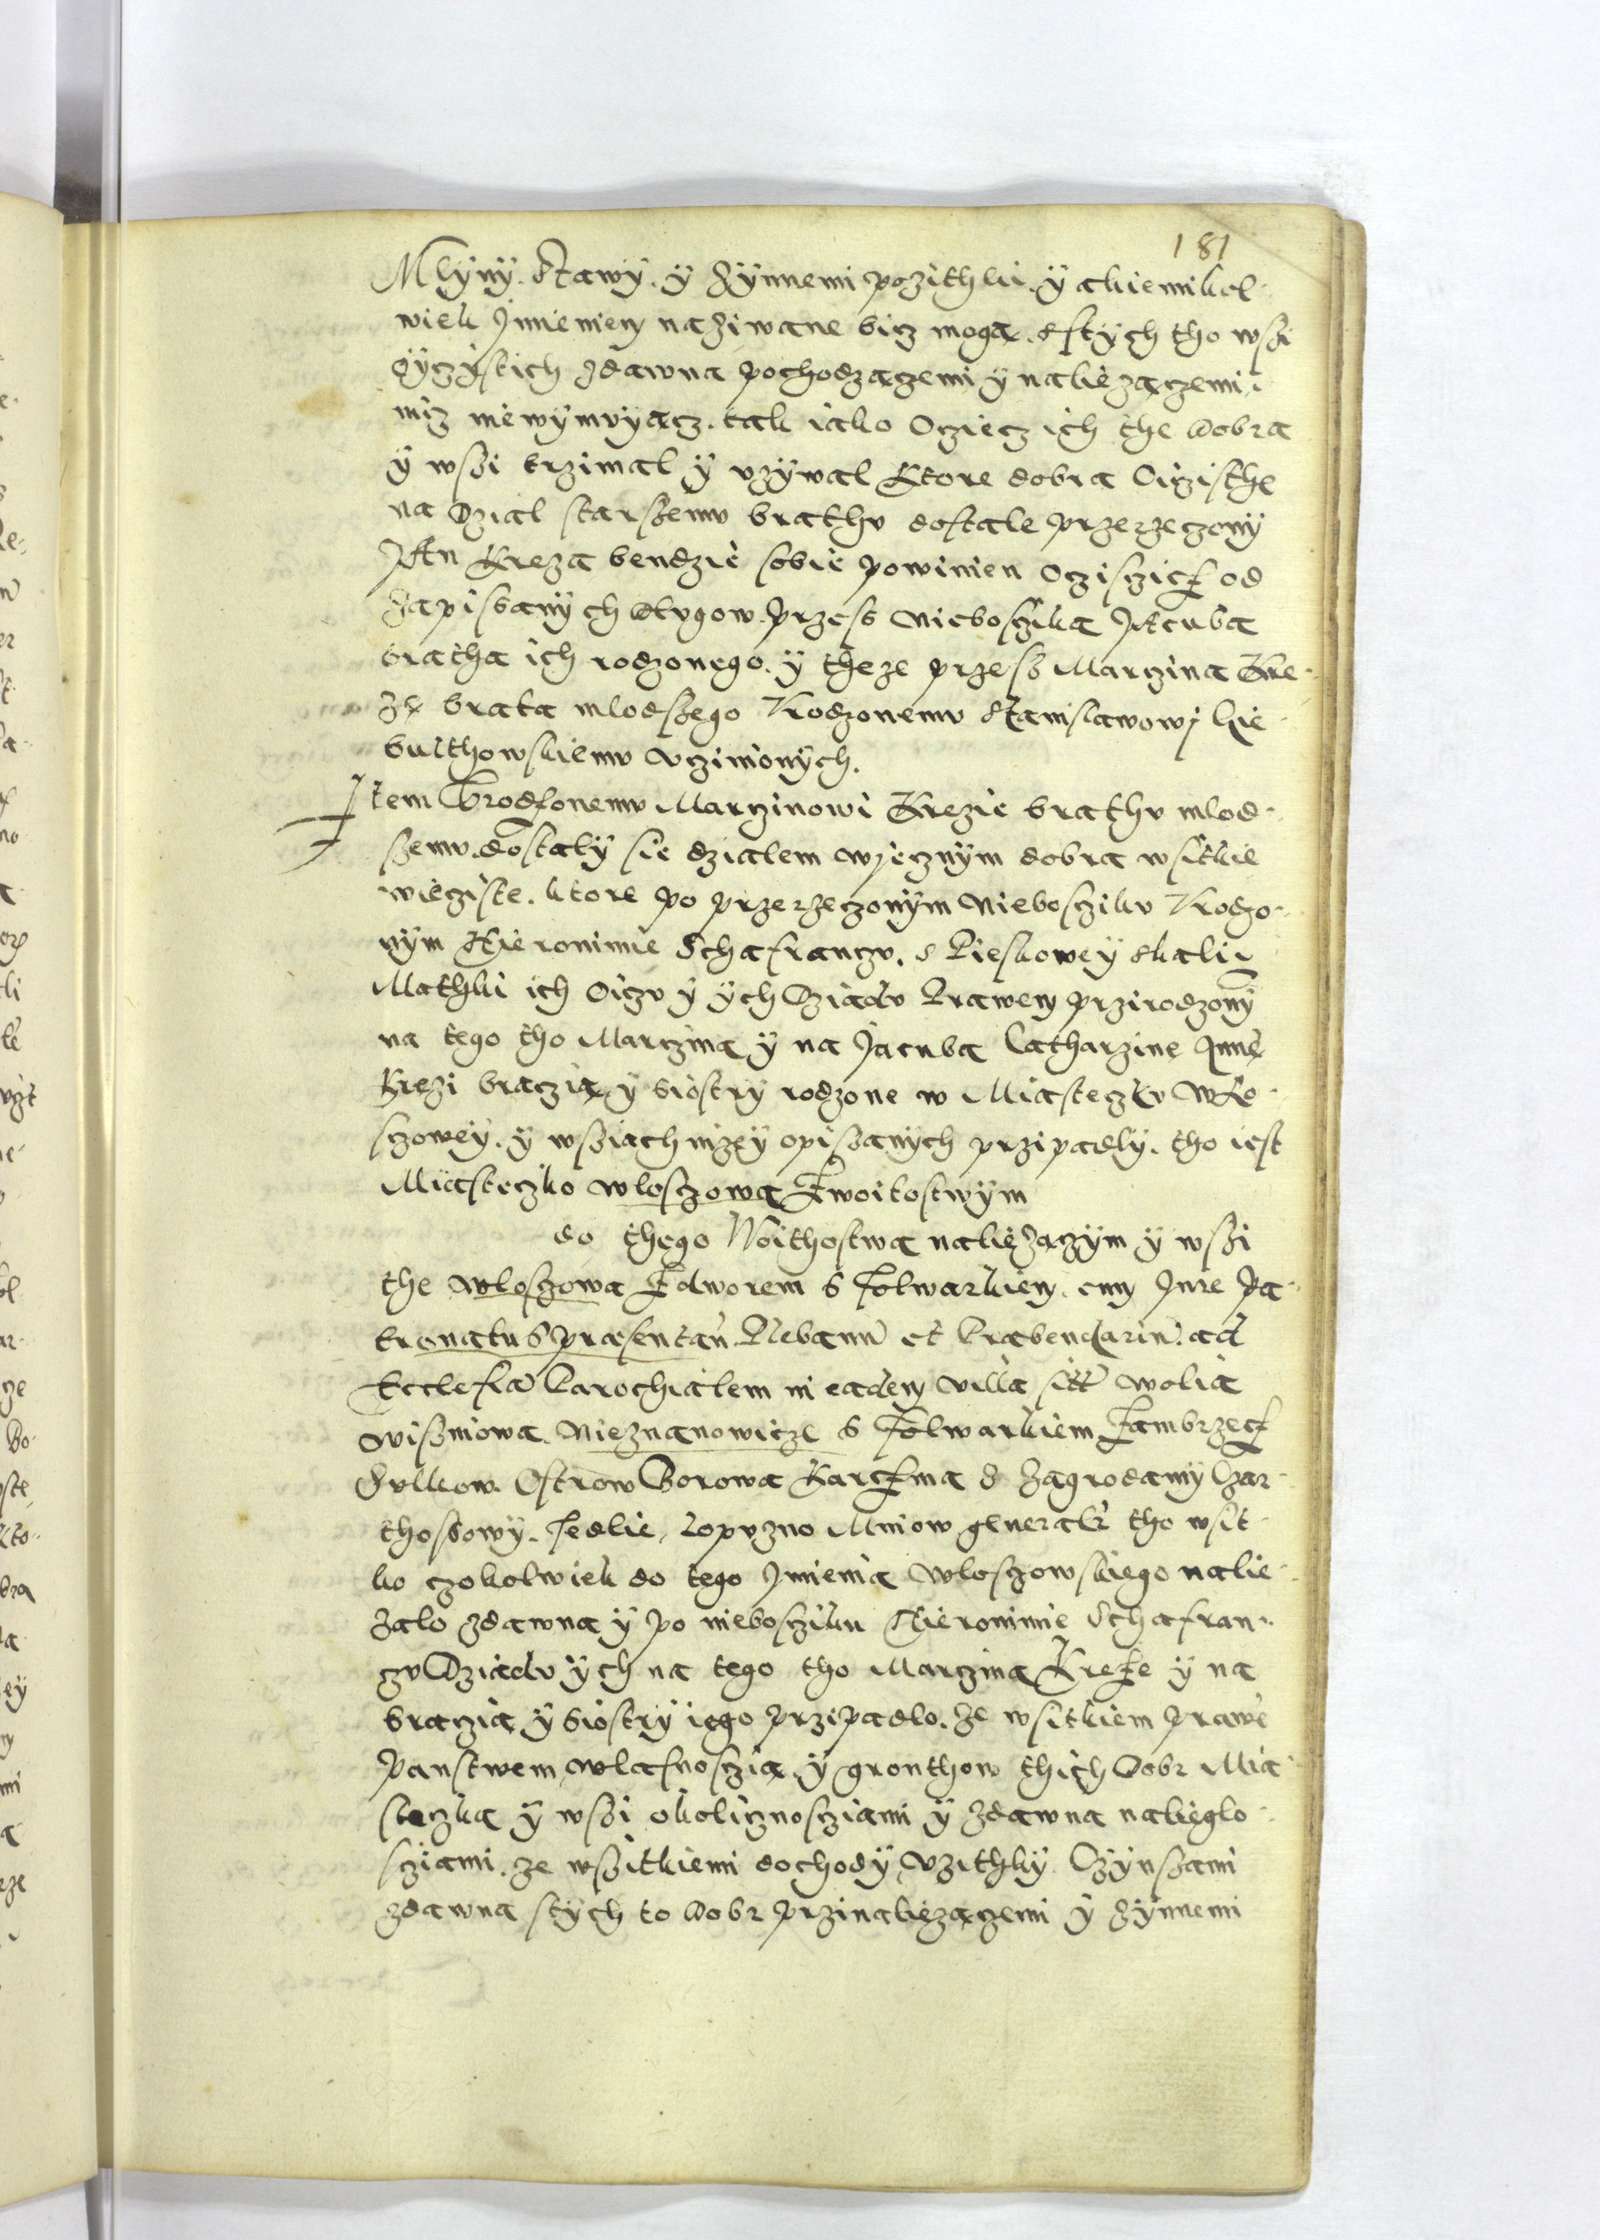 181
Mlÿnÿ. Stawÿ. ÿ Zÿnnemi pozithki. ÿ akiemikol-
wiek Jmieniem naziwane bicz mogą. Sstÿch tho wszi
Oÿczÿstich zdawna pochodzączemi ÿ należączemi.
nicz niewÿmuÿącz. tak iako Ocziecz ich the Dobra
ÿ wszi trzimal ÿ uzÿwal Ktore dobra Oiczisthe
na Dzial starszemu brathu dostale przerzeczonÿ
JAn Kreza bendzie sobie powinien Oczisczicz od
Zapisanÿch Dlugow. przess Nieboszika JAcuba
bratha ich rodzonego. ÿ theze przess Marczina Kre-
zę brata mlodszego Urodzonemu Stanislawowi Lie-
bulthowskiemu Uczinionÿch.
Item Urodsonemu Marczinowi Krezie brathu mlod-
szemu. dostalÿ sie dzialem wiecznÿm dobra wsitkie
wieczÿste. ktore po przerzeczonÿm Niebosziku Urodzo-
nÿm Hieronimie Schafranczu. s Pieskoweÿ skali
Mathki ich Oiczu ÿ ÿch Dziadu Prawem przirodzonÿ
na tego tho Marczina ÿ na Jacuba Catharzine Annę
Krezi braczią ÿ siostrÿ rodzone w Miasteczku Wlo-
szoweÿ. ÿ wsziach nizeÿ opisanÿch przipadlÿ. tho iest
Miasteczko Wloszowa Zwoitostwÿm
do thego Woithostwa należączÿm ÿ wszi
the Wloszowa Zdworem s Folwarkiem. cum Jure Pa-
tronatus præsentan̄. Plebanū et Præbendariū. ad
Ecclesiā Parochialem in eadem villa sitt̄ Wolia
Wisniowa. Nieznanowicze s Folwarkiem Zambrzecz
Kulkow. Ostrow Borowa Karczma s Zagrodamÿ Czar-
thossowÿ. Jedlie, Lopuzno Mniow generalr̄ tho wsit-
ko czokolwiek do tego Jmienia Wloszowskiego nalie-
zalo zdawna ÿ po niebosziku Hieronimie Schafran-
czu Dziadu ÿch na tego tho Marczina Kreze ÿ na
braczią ÿ siostrÿ iego przipadlo. ze wsitkiem prawē
panstwem wlasnosczią. ÿ gronthow thich Dobr Mia-
steczka ÿ wszi okolicznosciami ÿ zdawna nalieglo-
sciami. ze wszitkiemi dochodÿ uzithkÿ. Czÿnszami
zdawna stÿch to Dobr przinależączemi ÿ Zÿnnemi